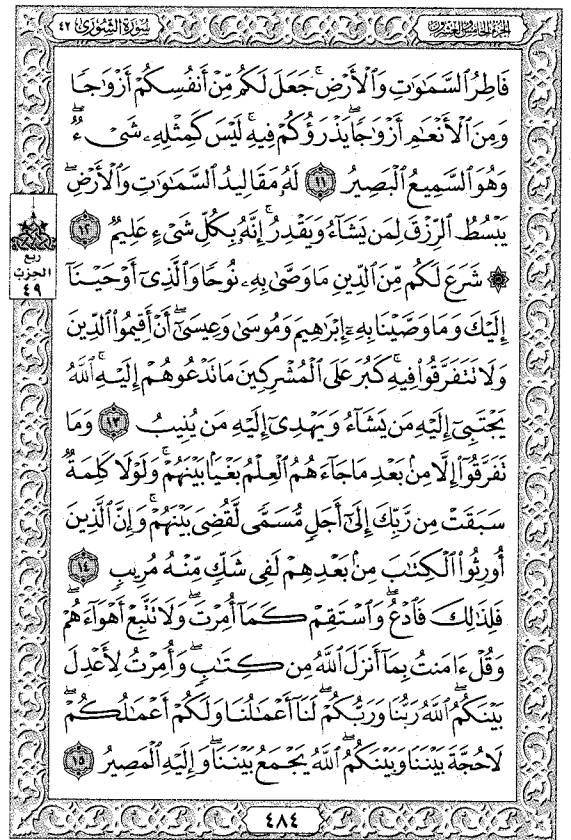 الجزء الخامس والعشرون
سورة الشورى ٤٢
فَاطِرُ السَّمَٰوَٰتِ وَالْأَرْضِ ۚ جَعَلَ لَكُم مِّنْ أَنفُسِكُمْ أَزْوَٰجًا
وَمِنَ الْأَنْعَٰمِ أَزْوَٰجًا ۖ يَذْرَؤُكُمْ فِيهِ ۚ لَيْسَ كَمِثْلِهِۦ شَىْءٌ ۖ
وَهُوَ السَّمِيعُ الْبَصِيرُ ١١ لَهُۥ مَقَالِيدُ السَّمَٰوَٰتِ وَالْأَرْضِ ۖ
يَبْسُطُ الرِّزْقَ لِمَن يَشَآءُ وَيَقْدِرُ ۚ إِنَّهُۥ بِكُلِّ شَىْءٍ عَلِيمٌ ١٢
۞ شَرَعَ لَكُم مِّنَ الدِّينِ مَا وَصَّىٰ بِهِۦ نُوحًا وَالَّذِىٓ أَوْحَيْنَآ
إِلَيْكَ وَمَا وَصَّيْنَا بِهِۦٓ إِبْرَٰهِيمَ وَمُوسَىٰ وَعِيسَىٰٓ ۖ أَنْ أَقِيمُوا۟ الدِّينَ
وَلَا تَتَفَرَّقُوا۟ فِيهِ ۚ كَبُرَ عَلَى الْمُشْرِكِينَ مَا تَدْعُوهُمْ إِلَيْهِ ۚ اللَّهُ
يَجْتَبِىٓ إِلَيْهِ مَن يَشَآءُ وَيَهْدِىٓ إِلَيْهِ مَن يُنِيبُ ١٣ وَمَا
تَفَرَّقُوٓا۟ إِلَّا مِنۢ بَعْدِ مَا جَآءَهُمُ الْعِلْمُ بَغْيًۢا بَيْنَهُمْ ۚ وَلَوْلَا كَلِمَةٌ
سَبَقَتْ مِن رَّبِّكَ إِلَىٰٓ أَجَلٍ مُّسَمًّى لَّقُضِىَ بَيْنَهُمْ ۚ وَإِنَّ الَّذِينَ
أُورِثُوا۟ الْكِتَٰبَ مِنۢ بَعْدِهِمْ لَفِى شَكٍّ مِّنْهُ مُرِيبٍ ١٤
فَلِذَٰلِكَ فَادْعُ ۖ وَاسْتَقِمْ كَمَآ أُمِرْتَ ۖ وَلَا تَتَّبِعْ أَهْوَآءَهُمْ ۖ
وَقُلْ ءَامَنتُ بِمَآ أَنزَلَ اللَّهُ مِن كِتَٰبٍ ۖ وَأُمِرْتُ لِأَعْدِلَ
بَيْنَكُمُ ۖ اللَّهُ رَبُّنَا وَرَبُّكُمْ ۖ لَنَآ أَعْمَٰلُنَا وَلَكُمْ أَعْمَٰلُكُمْ ۖ
لَا حُجَّةَ بَيْنَنَا وَبَيْنَكُمُ ۖ اللَّهُ يَجْمَعُ بَيْنَنَا ۖ وَإِلَيْهِ الْمَصِيرُ ١٥
ربع
الحزب
٤٩
٤٨٤